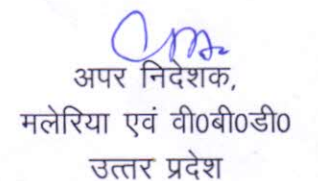 अपर निदेशक,
मलेरिया एवं वी०बी०डी०
उत्तर प्रदेश